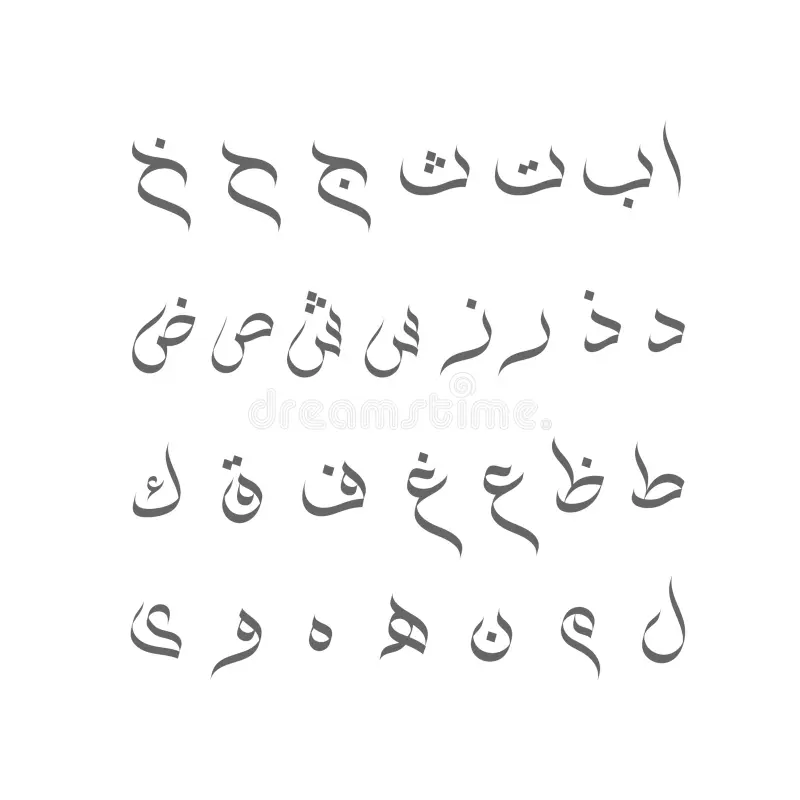 ا ب ت ث ج ح خ
د ذ ر ز س ش ص ض
ط ظ ع غ ف ة ك
ل م ن ه ه و ى
dreamstime